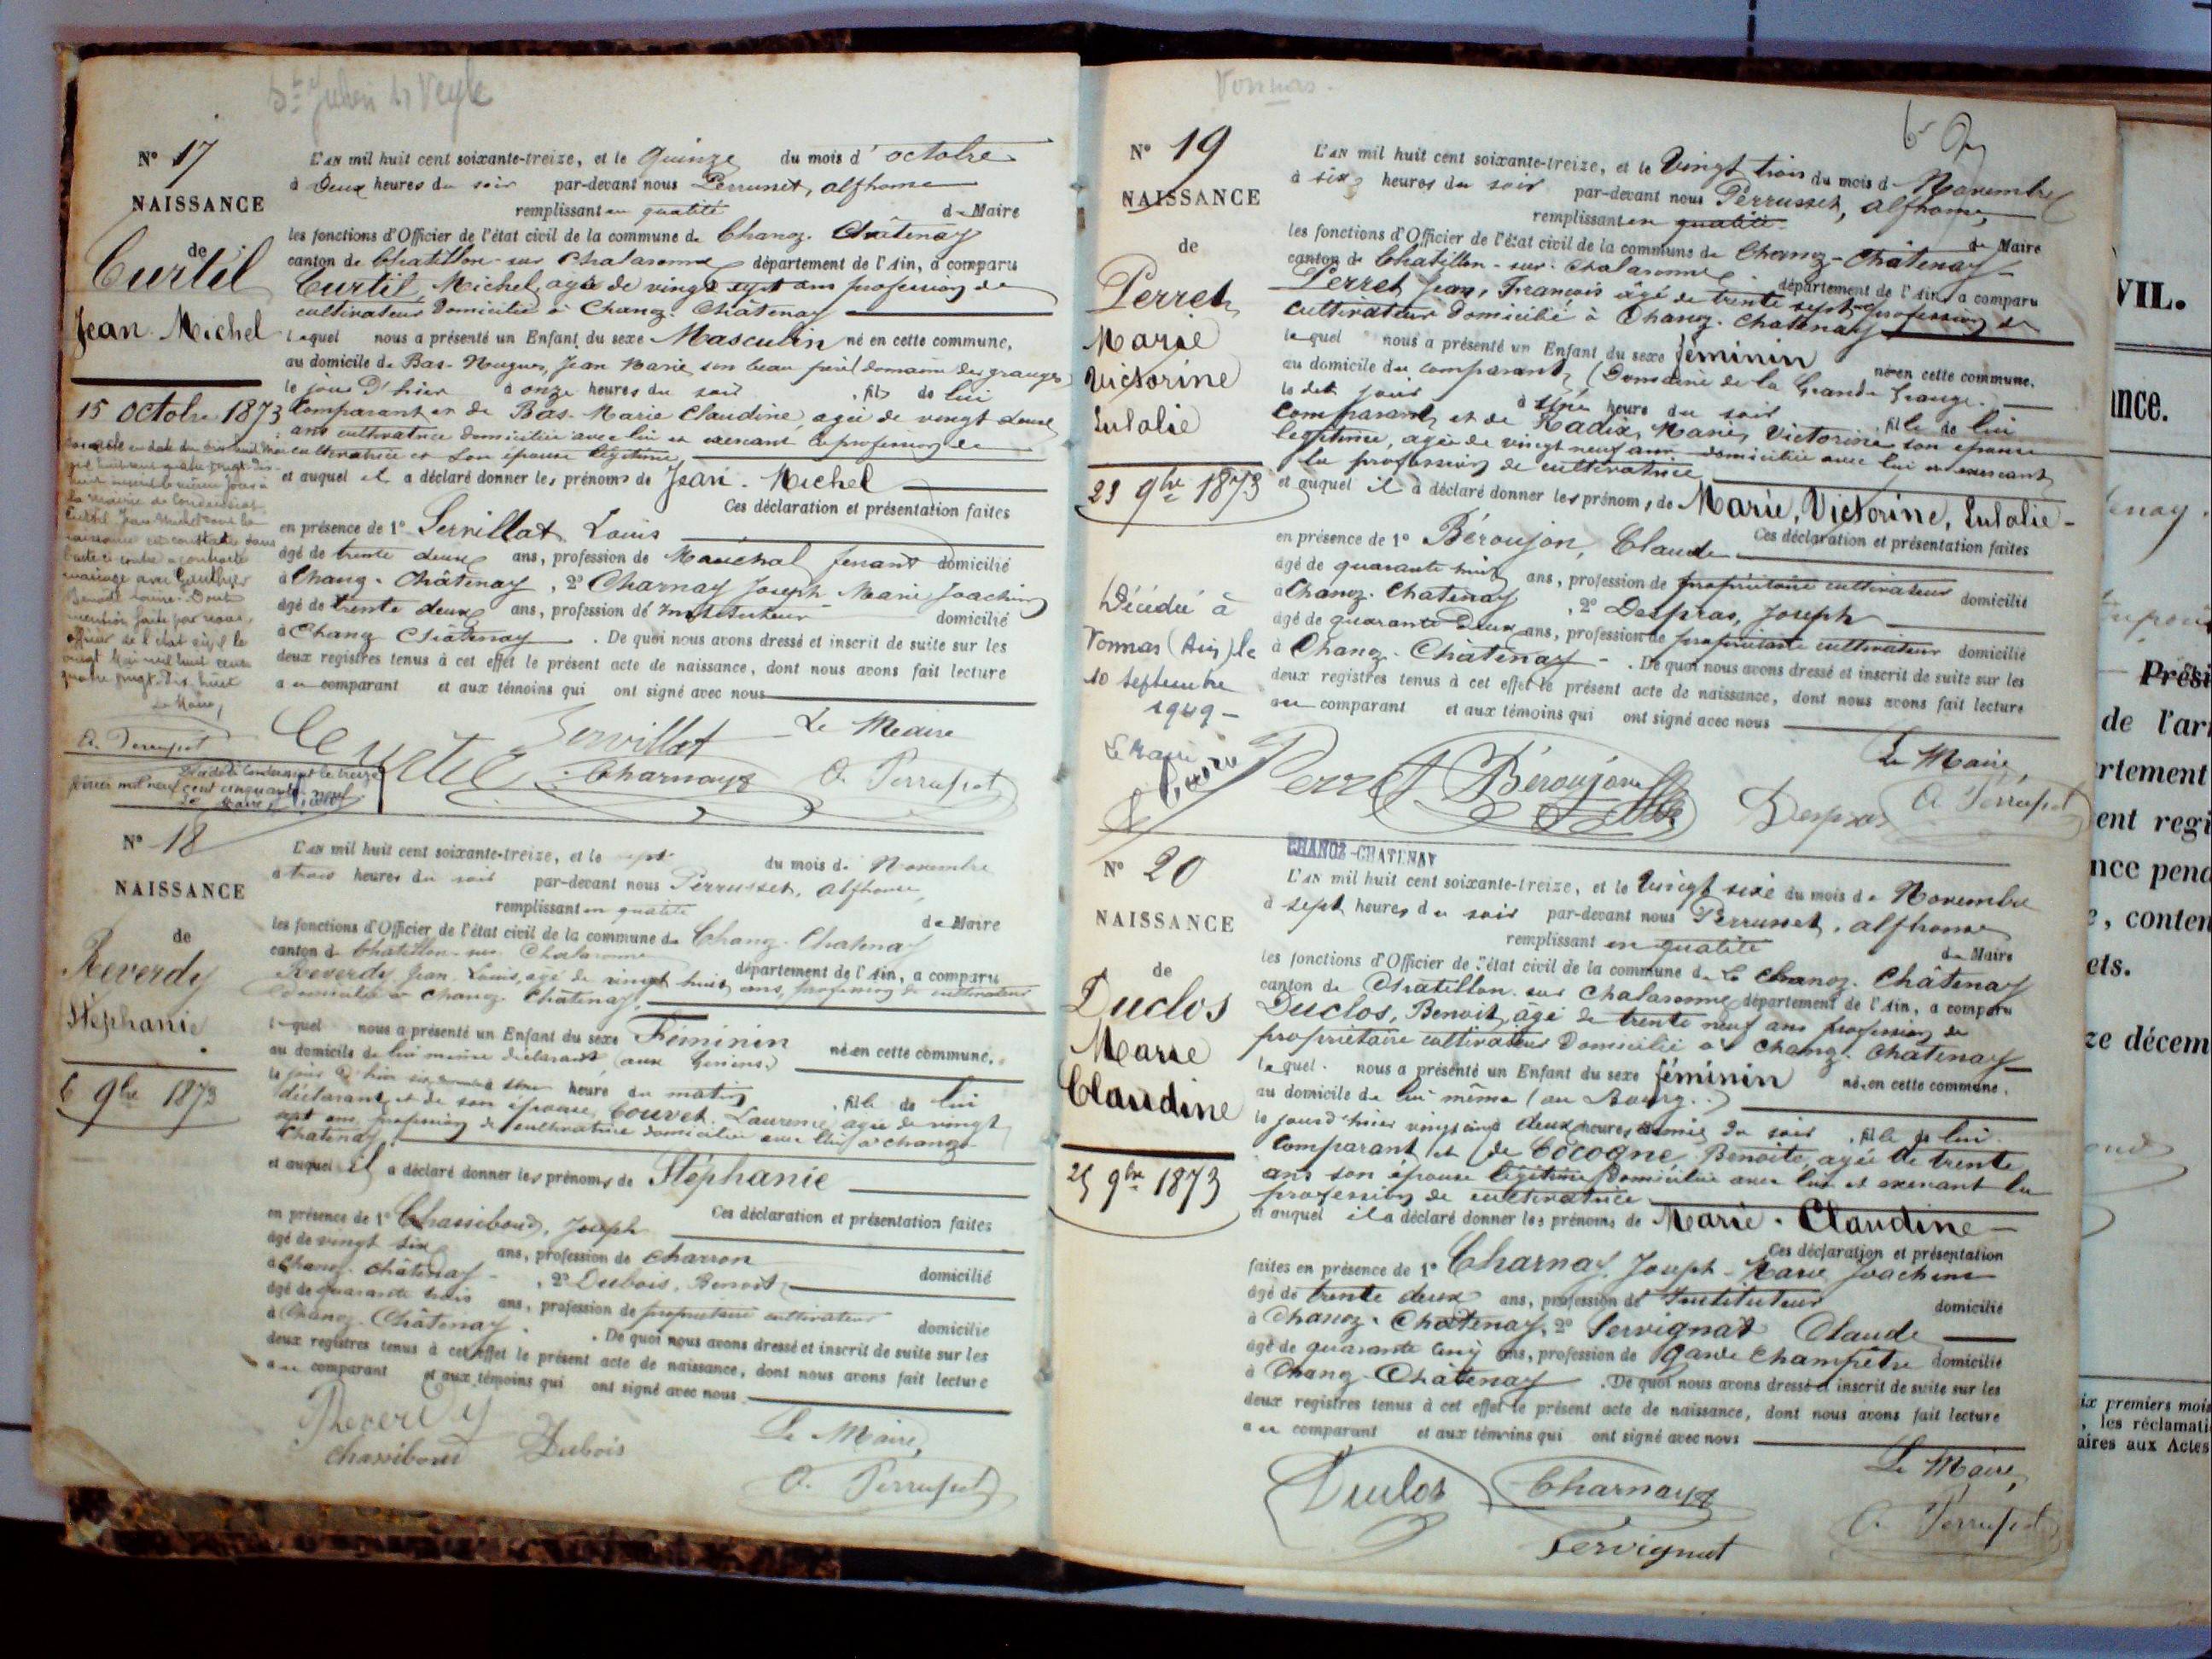 St Julien s/ Veyle
N° 17
NAISSANCE
de
Curtil
Jean Michel
15 octobre 1873
L'AN mil huit cent soixante-treize, et le quinze du mois d'octobre
à deux heures du soir par-devant nous Perrusset, alphonse
remplissant en qualité de Maire
les fonctions d'Officier de l'état civil de la commune de Chanoz-Châtenay
canton de Chatillon-sur-Chalaronne département de l'Ain, a comparu
Curtil, Michel, agé de vingt sept ans profession de
cultivateur domicilié à Chanoz-Châtenay
lequel nous a présenté un Enfant du sexe Masculin né en cette commune,
au domicile de Bas-Nugues, Jean Marie, son beau père (domaine des granges)
le jour d'hier à onze heures du soir, fils de lui
Comparant et de Bas-Marie Claudine, agée de vingt deux
ans cultivatrice domiciliée avec lui et exercant la profession de
cultivatrice et son épouse légitime
et auquel il a déclaré donner les prénoms de Jean-Michel
Ces déclaration et présentation faites
en présence de 1° Servillat Louis
âgé de trente deux ans, profession de Maréchal ferrant domicilié
à Chanoz-Châtenay, 2° Charnay Joseph Marie Joachim
âgé de trente deux ans, profession de Instituteur domicilié
à Chanoz Châtenay. De quoi nous avons dressé et inscrit de suite sur les
deux registres tenus à cet effet le présent acte de naissance, dont nous avons fait lecture
au comparant et aux témoins qui ont signé avec nous
la mairie de Condeissiat
Curtil Jean Michel dont la
naissance est constatée dans
l'acte ci contre a contracté
mariage avec Gauthier
Benoite Louise. Dont
mention faite par nous,
officier de l'état civil le
vingt Mai mil huit cent
quatre vingt-dix huit
Le Maire,
A. Perrusset
Décédé à Condeissiat le treize
février mil neuf cent cinquante-neuf
Le Maire
Curtil Servillat Le Maire
Charnay A. Perrusset
N° 18
NAISSANCE
de
Reverdy
Stéphanie
6 9bre 1873
L'AN mil huit cent soixante-treize, et le sept du mois de Novembre
à trois heures du soir par-devant nous Perrusset, alphonse,
remplissant en qualité de Maire
les fonctions d'Officier de l'état civil de la commune de Chanoz-Chatenay
canton de Chatillon-sur Chalaronne département de l'Ain, a comparu
Reverdy, Jean Louis, agé de vingt huit ans, profession de cultivateur
domicilié à Chanoz-Châtenay
lequel nous a présenté un Enfant du sexe Féminin née en cette commune,
au domicile de lui même déclarant (aux Genins)
le jour d'hier six à une heure du matin, fille de lui
déclarant et de son épouse Couvet Laurence agée de vingt
sept ans, profession de cultivatrice domiciliée avec lui à Chanoz
Chatenay
et auquel il a déclaré donner les prénoms de Stéphanie
Ces déclaration et présentation faites
en présence de 1° Chassiboud, Joseph
âgé de vingt six ans, profession de charron domicilié
à Chanoz-Châtenay, 2° Dubois, Benoit
âgé de quarante trois ans, profession de propriétaire cultivateur domicilié
à Chanoz-Châtenay. De quoi nous avons dressé et inscrit de suite sur les
deux registres tenus à cet effet le présent acte de naissance, dont nous avons fait lecture
au comparant et aux témoins qui ont signé avec nous
Reverdy
Chassiboud Dubois Le Maire,
A. Perrusset
Vonnas.
N° 19
NAISSANCE
de
Perret
Marie
Victorine
Eulalie
23 9bre 1873
Décédée à
Vonnas (Ain) le
10 septembre
1949
Le Maire
L'AN mil huit cent soixante-treize, et le vingt trois du mois de Novembre
à six heures du soir par-devant nous Perrusset, alphonse,
remplissant en qualité de Maire
les fonctions d'Officier de l'état civil de la commune de Chanoz-Châtenay
canton de Chatillon-sur-Chalaronne département de l'Ain, a comparu
Perret Jean, François âgé de trente sept profession de
cultivateur domicilié à Chanoz-Chatenay
lequel nous a présenté un Enfant du sexe féminin née en cette commune,
au domicile du comparant, (Domaine de la Grande Grange.
le dit jour à une heure du soir, fille de lui
Comparant et de Radix, Marie, Victorine son épouse
légitime, agée de vingt neuf ans domiciliée avec lui et exercant
la profession de cultivatrice
et auquel il a déclaré donner les prénoms de Marie, Victorine, Eulalie
Ces déclaration et présentation faites
en présence de 1° Béroujon, Claude
âgé de quarante huit ans, profession de propriétaire cultivateur domicilié
à Chanoz-Chatenay, 2° Despras, Joseph
âgé de quarante deux ans, profession de propriétaire cultivateur domicilié
à Chanoz-Châtenay. De quoi nous avons dressé et inscrit de suite sur les
deux registres tenus à cet effet le présent acte de naissance, dont nous avons fait lecture
au comparant et aux témoins qui ont signé avec nous
Le Maire,
Perret Béroujon Despras A. Perrusset
CHANOZ-CHATENAY
N° 20
NAISSANCE
de
Duclos
Marie
Claudine
25 9bre 1873
L'AN mil huit cent soixante-treize, et le vingt six du mois de Novembre
à sept heures du soir par-devant nous Perrusset, alphonse
remplissant en qualité de Maire
les fonctions d'Officier de l'état civil de la commune de Chanoz-Châtenay
canton de Chatillon-sur Chalaronne département de l'Ain, a comparu
Duclos, Benoit, agé de trente neuf ans profession de
propriétaire cultivateur domicilié à Chanoz-Châtenay
lequel nous a présenté un Enfant du sexe féminin née en cette commune,
au domicile de lui même (au Bourg..)
le jour d'hier vingt cinq deux heures et demie du soir, fille de lui
Comparant et de Cocogne Benoite, agée de trente
ans son épouse légitime domiciliée avec lui et exercant la
profession de cultivatrice
et auquel il a déclaré donner les prénoms de Marie-Claudine
Ces déclaration et présentation
faites en présence de 1° Charnay, Joseph-Marie Joachim
âgé de trente deux ans, profession de Instituteur domicilié
à Chanoz-Châtenay, 2° Servignat Claude
âgé de quarante cinq ans, profession de garde champêtre domicilié
à Chanoz-Châtenay. De quoi nous avons dressé et inscrit de suite sur les
deux registres tenus à cet effet le présent acte de naissance, dont nous avons fait lecture
au comparant et aux témoins qui ont signé avec nous
Le Maire,
Duclos Charnay A. Perrusset
Servignat
VIL.
nce.
enay.
Prési
de l'arr
rtement
ent regi
nce pend
e, conten
ets.
ze décem
ix premiers mois
, les réclamati
aires aux Actes